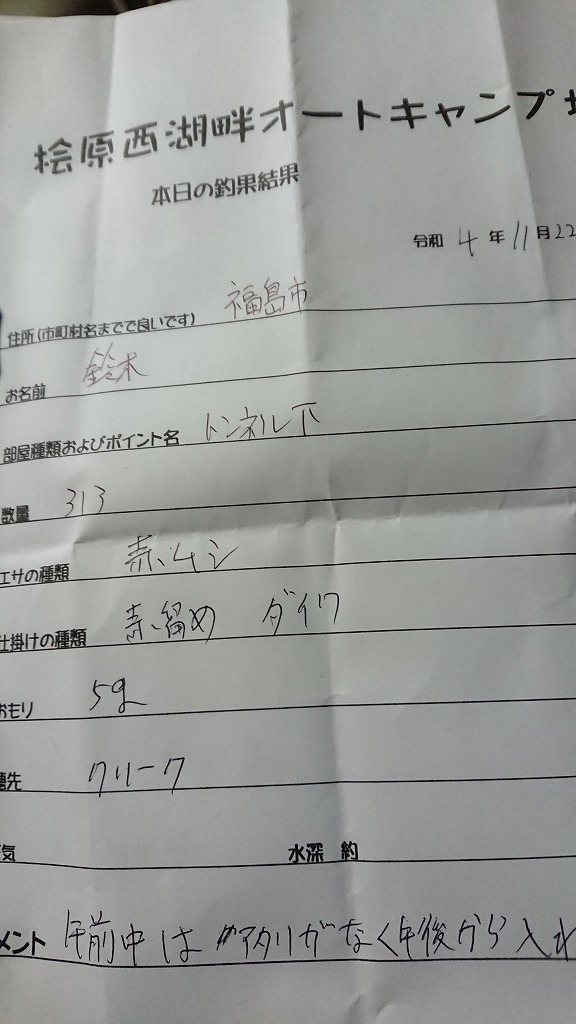 桧原西湖畔オートキャンプ
本日の釣果結果
令和 4 年 11 月 22
住所(市町村名までで良いです) 福島市
お名前 鈴木
部屋種類およびポイント名 トンネル下
数量 313
エサの種類 赤ムシ
仕掛けの種類 赤留め ダイワ
おもり 5g
穂先 クリーク
気 水深 約
メント 午前中は アタリがなく午後から入れ